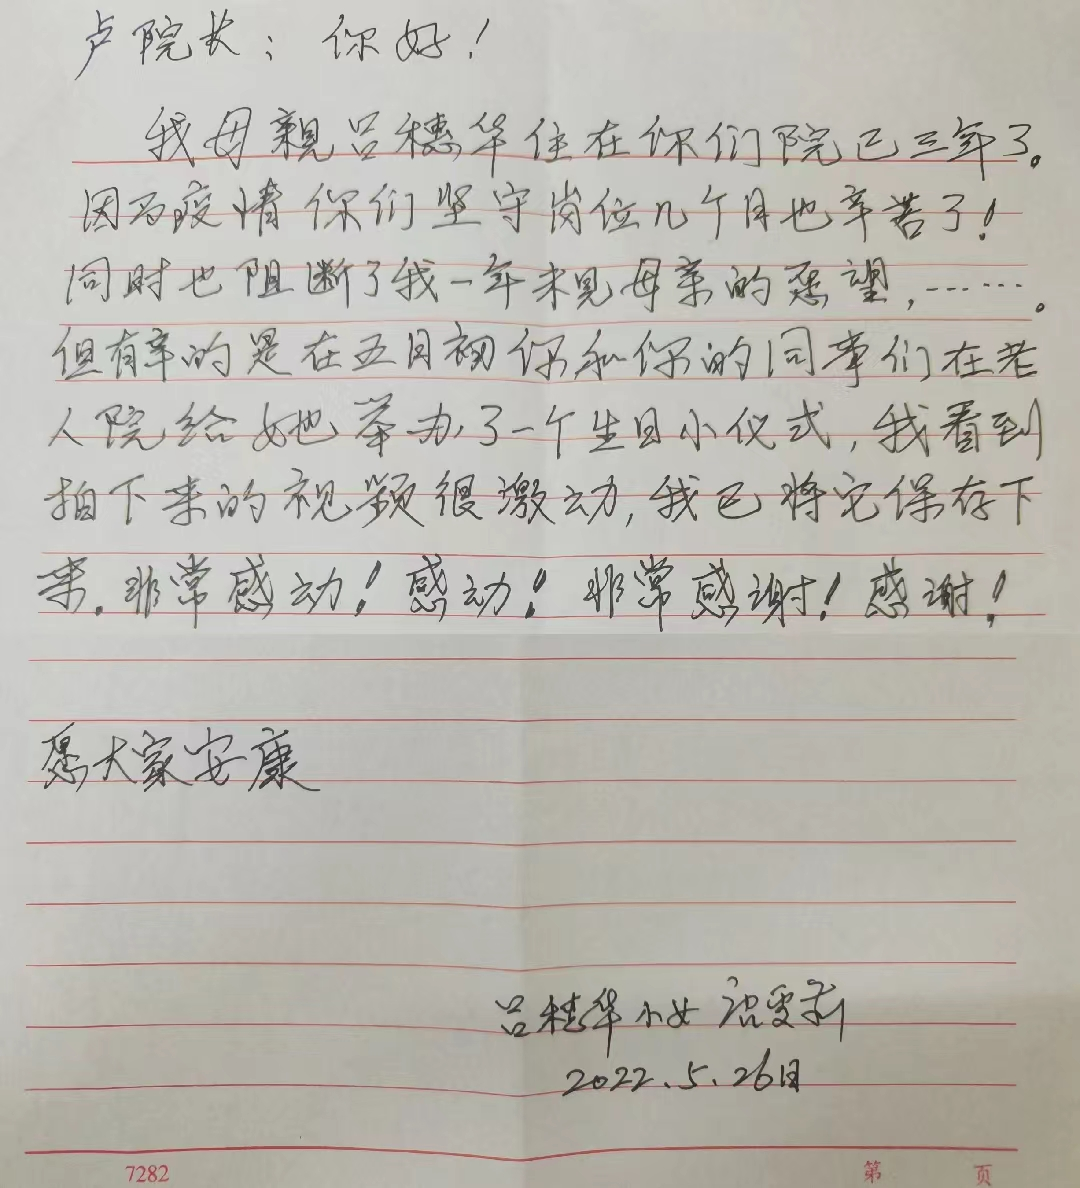 卢院长：你好！
我母親吕穗华住在你们院已三年了。
因为疫情你们坚守岗位几个月也辛苦了！
同时也阻断了我一年未见母亲的愿望，……。
但有幸的是在五月初你和你的同事们在老
人院给她举办了一个生日小仪式，我看到
拍下来的视频很激动，我已将它保存下
来．非常感动！感动！非常感谢！感谢！
愿大家安康
吕穗华小女
2022.5.26日
7282
第 页